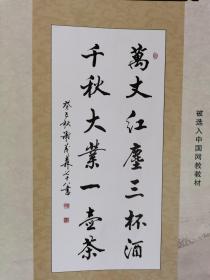 萬丈紅塵三杯酒
千秋大業一壺茶
被选入中国网教教材